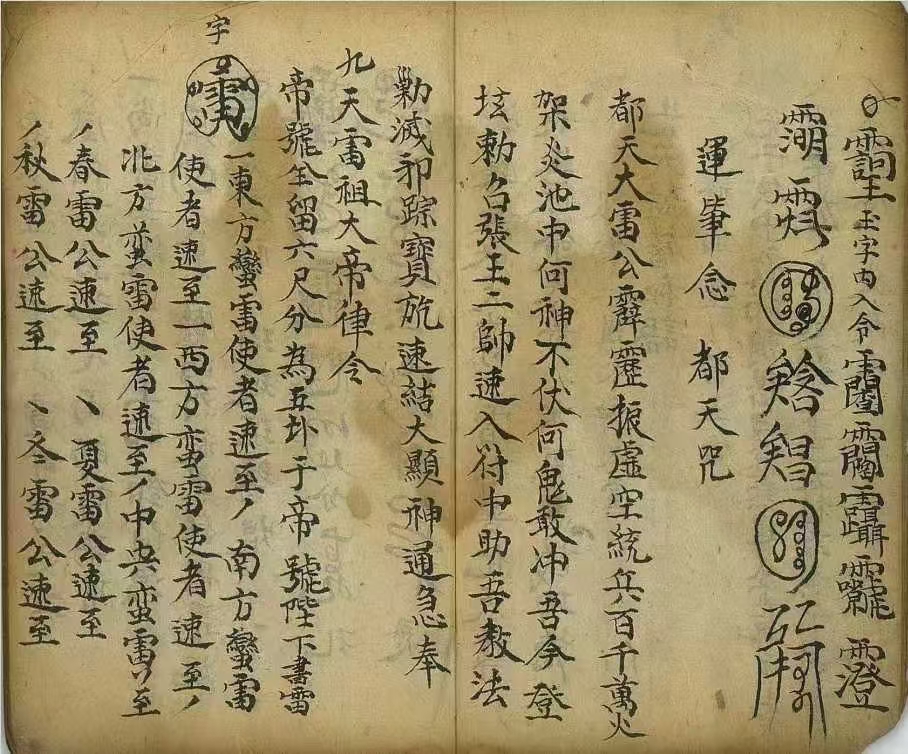 玉字内入令
運筆念都天咒
都天大雷公霹靂振虚空統兵百千萬火
架炎池中何神不伏何鬼敢冲吾今登
壇勅召張王二帥速入符中助吾教法
勦滅邪踪寶旂速結大顯神通急奉
九天雷祖大帝律令
帝號全留六尺分為五卦于帝號陛下書雷
字
一東方蠻雷使者速至南方蠻雷
使者速至一西方蛮雷使者速至
北方蛮雷使者速至中央蛮雷至
春雷公速至夏雷公速至
秋雷公速至冬雷公速至